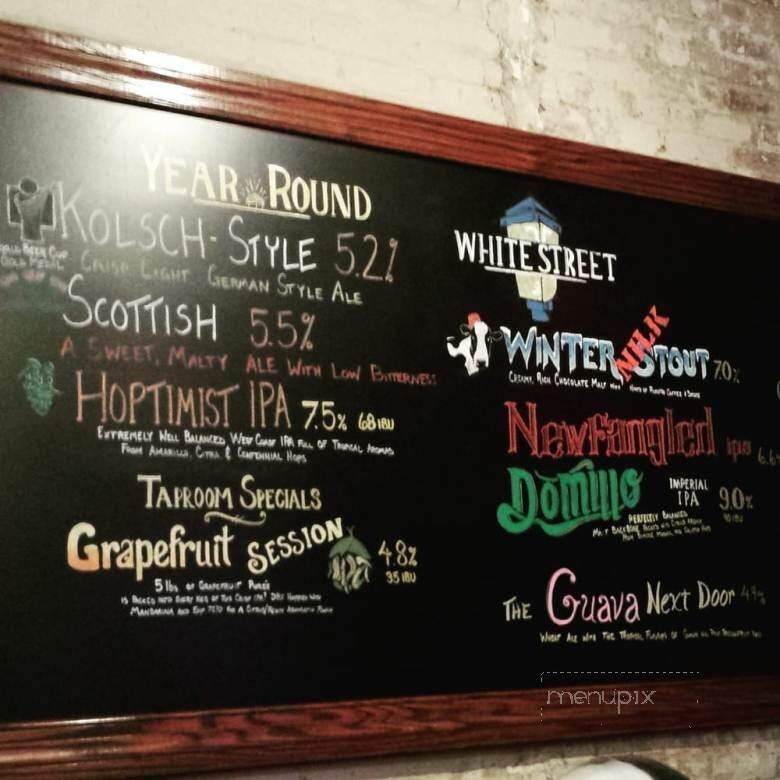 YEAR ROUND
KOLSCH-STYLE 5.2%
WORLD BEER CUP
GOLD MEDAL
CRISP LIGHT GERMAN STYLE ALE
SCOTTISH 5.5%
A SWEET, MALTY ALE WITH LOW BITTERNESS
HOPTIMIST IPA 7.5% 68 IBU
EXTREMELY WELL BALANCED WEST COAST IPA FULL OF TROPICAL AROMAS
FROM AMARILLO, CITRA & CENTENNIAL HOPS
TAPROOM SPECIALS
Grapefruit SESSION IPA 4.8%
35 IBU
5 lbs OF GRAPEFRUIT PUREE
IS PACKED INTO EVERY KEG OF THIS DRY HOPPED WITH
MANDARINA AND EXP 7270 FOR A
WHITE STREET
WINTER MILK STOUT 7.0%
CREAMY, RICH CHOCOLATE MALT WITH HINTS OF ROASTED COFFEE &
Newfangled IPA 6.6%
Domino IMPERIAL IPA 9.0%
90 IBU
PERFECTLY BALANCED
MALT BACKBONE
THE Guava Next Door 4.9%
WHEAT ALE WITH THE TROPICAL FLAVORS OF GUAVA
menupix